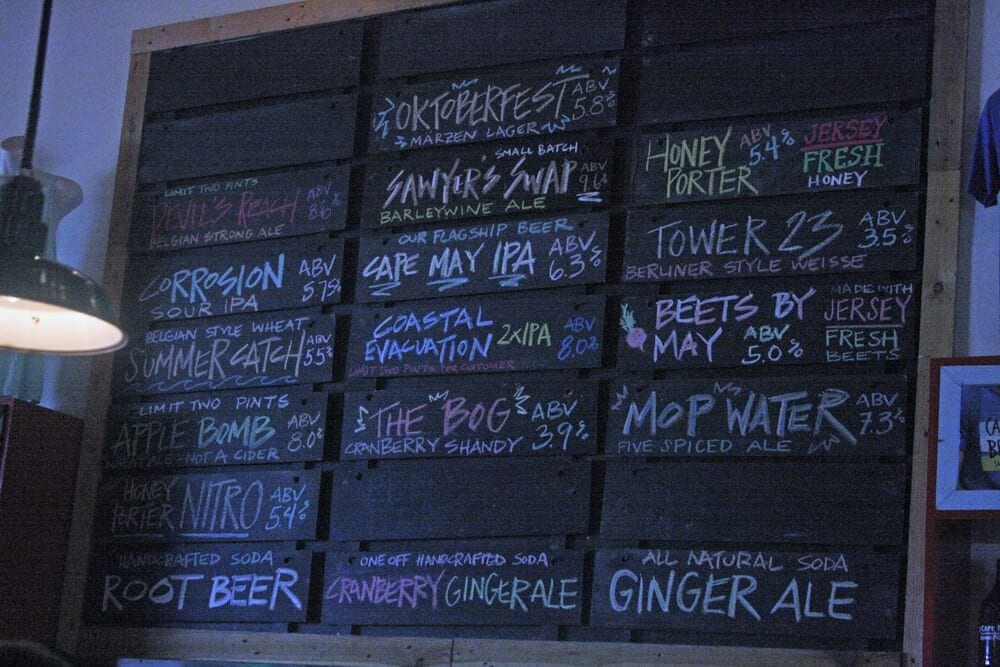 LIMIT TWO PINTS
DEVIL'S REACH ABV 8.6%
BELGIAN STRONG ALE
CORROSION ABV 5.7%
SOUR IPA
BELGIAN STYLE WHEAT
SUMMER CATCH ABV 5.5%
LIMIT TWO PINTS
APPLE BOMB ABV 8.0%
ALE - NOT A CIDER
HONEY PORTER NITRO ABV 5.4%
HANDCRAFTED SODA
ROOT BEER
OKTOBERFEST ABV 5.8%
MÄRZEN LAGER
SMALL BATCH
SAWYER'S SWAP ABV 9.6%
BARLEYWINE ALE
OUR FLAGSHIP BEER
CAPE MAY IPA ABV 6.3%
COASTAL
EVACUATION 2XIPA ABV 8.0%
LIMIT TWO PINTS PER CUSTOMER
THE BOG ABV 3.9%
CRANBERRY SHANDY
ONE OFF HANDCRAFTED SODA
CRANBERRY GINGERALE
HONEY PORTER ABV 5.4%
JERSEY
FRESH
HONEY
TOWER 23 ABV 3.5%
BERLINER STYLE WEISSE
BEETS BY
MAY ABV 5.0%
MADE WITH
JERSEY
FRESH
BEETS
MOP WATER ABV 7.3%
FIVE SPICED ALE
ALL NATURAL SODA
GINGER ALE